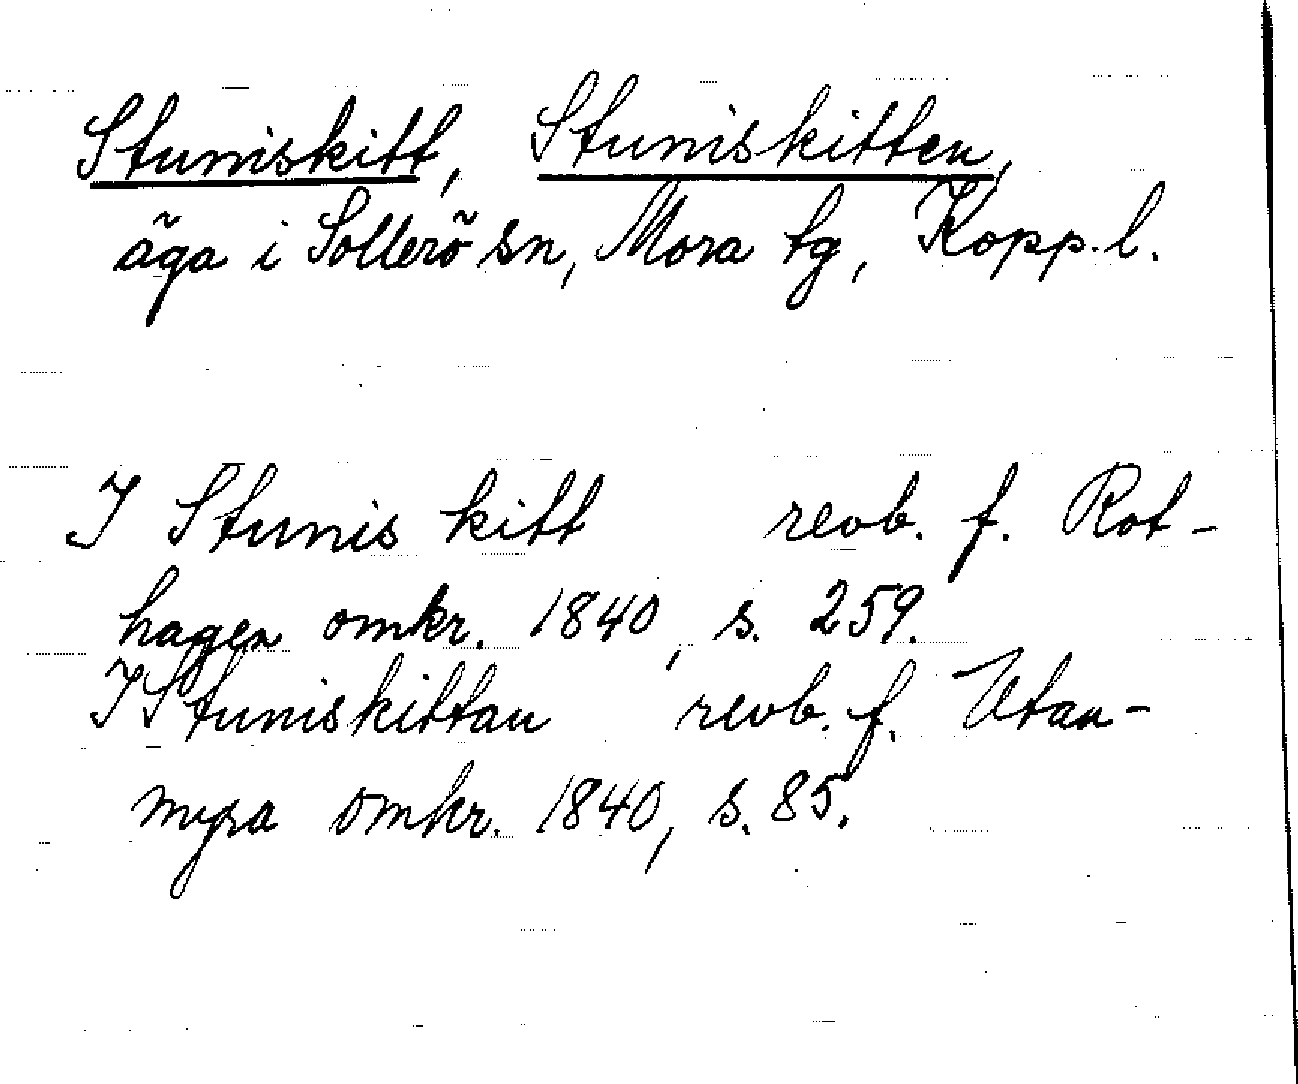 Stuniskitt, Stuniskitten,
äga i Sollerö sn, Mora tg, Kopp. l.
I Stunis kitt revb. f. Rot-
hagen omkr. 1840, s. 259.
I Stuniskittan revb. f. Utan-
myra omkr. 1840, s. 85.